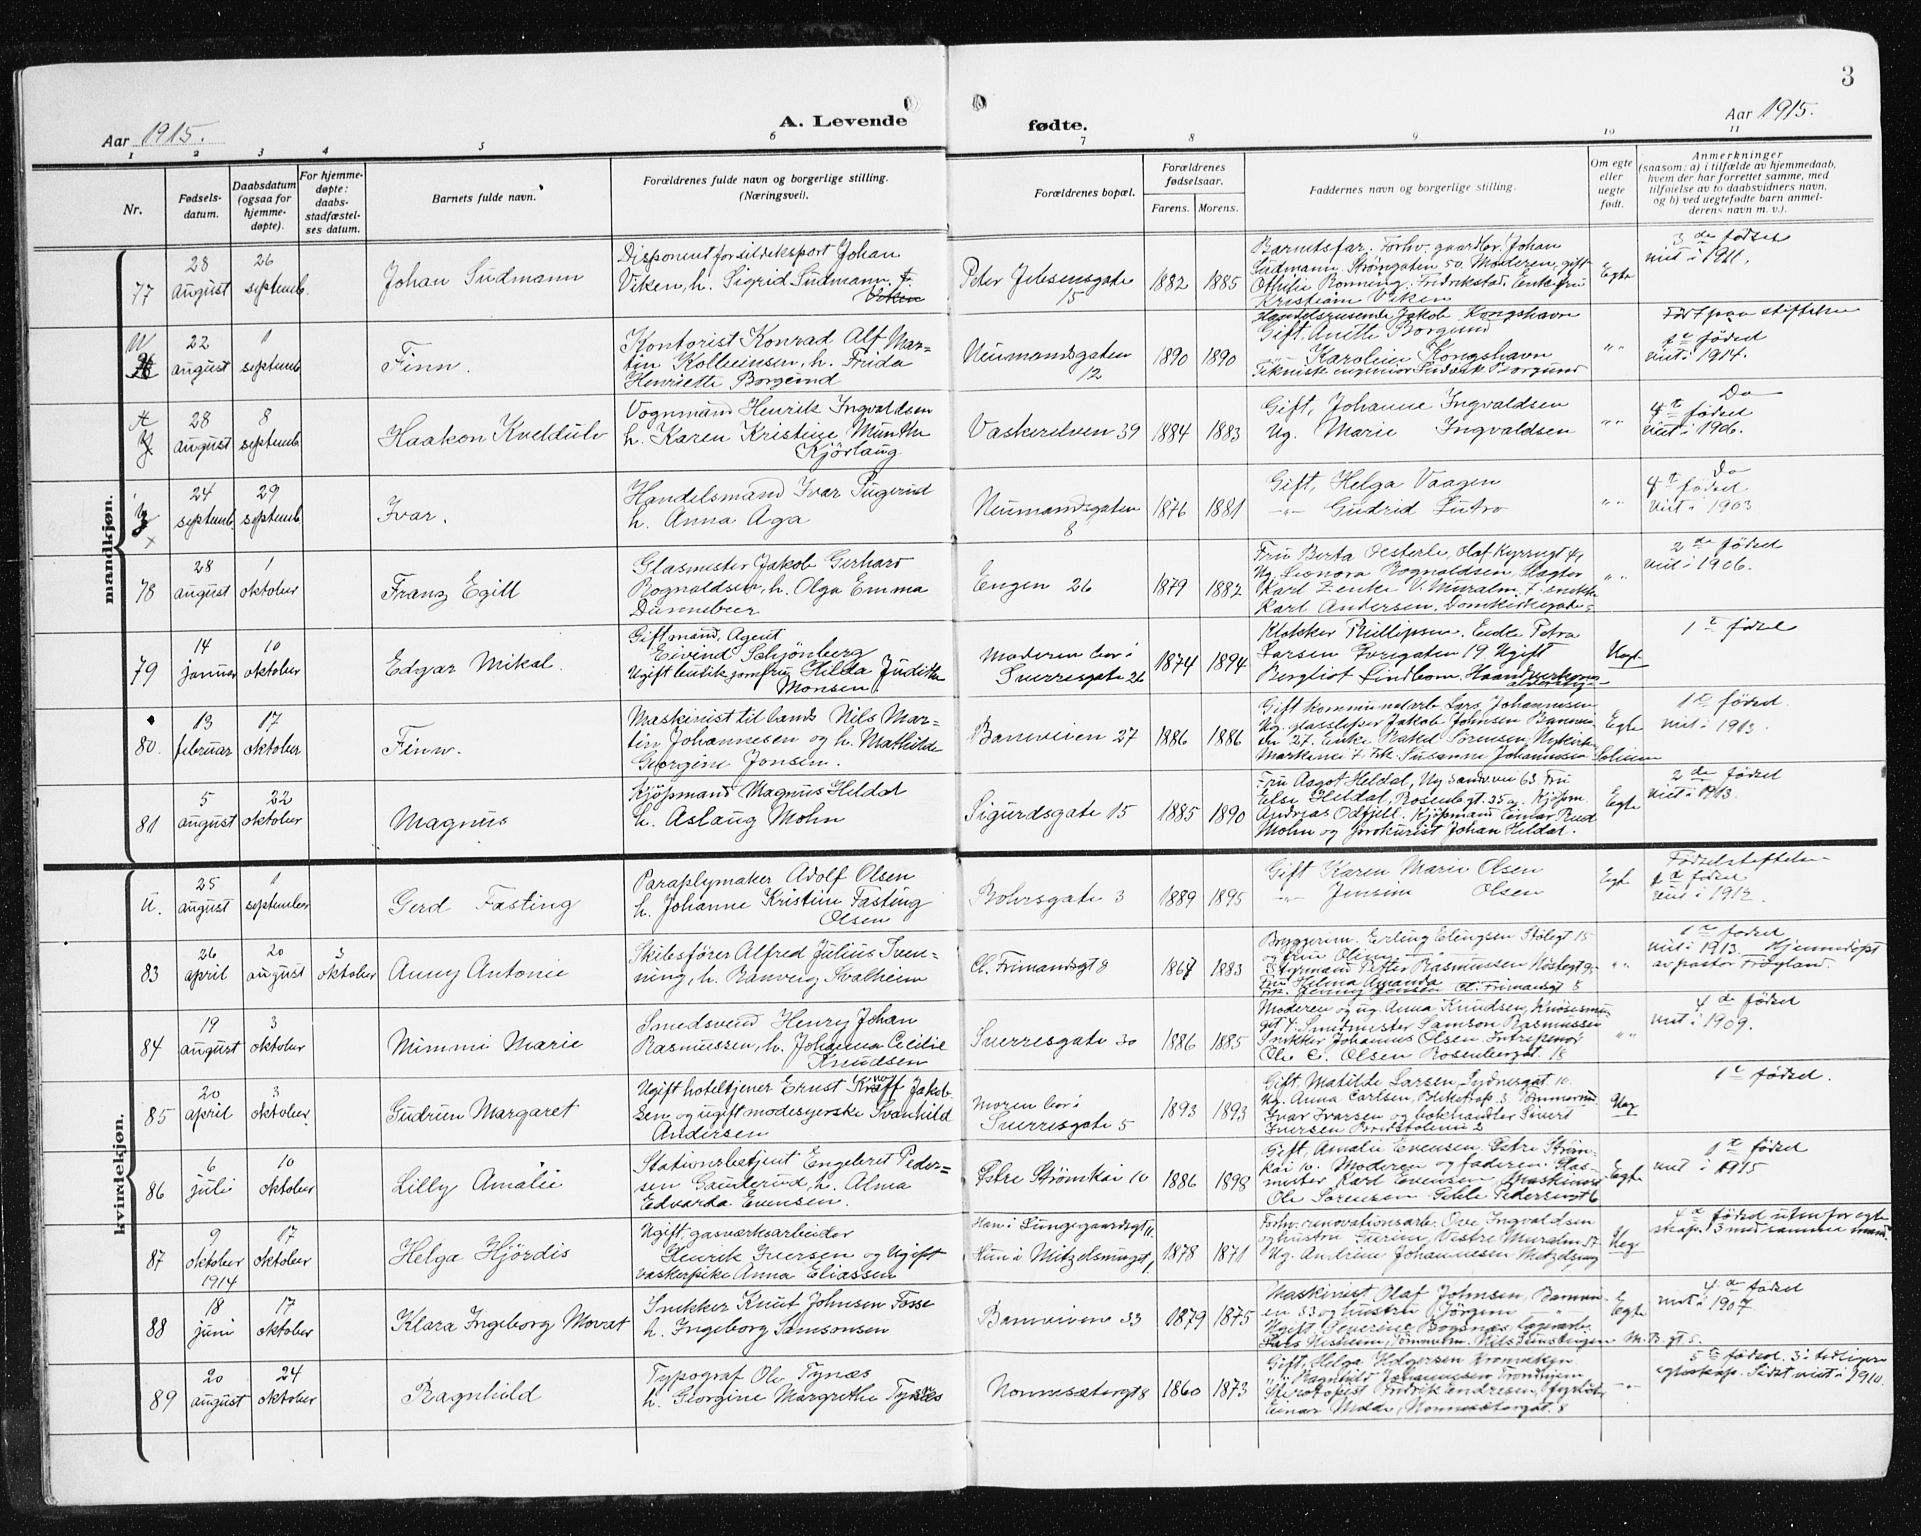 3
Aar 1915.
A. Levende
fødte.
Aar 1915.
1 2 3 4 5 6 7 8 9 10 11
Nr.
Fødsels-
datum.
Daabsdatum
(ogsaa for
hjemme-
døpte).
For hjemme-
døpte:
daabs-
stadfæstel-
ses datum.
Barnets fulde navn.
Forældrenes fulde navn og borgerlige stilling.
(Næringsvei).
Forældrenes bopæl.
Forældrenes
fødselsaar.
Farens. Morens.
Faddernes navn og borgerlige stilling.
Om egte
eller
uegte
født.
Anmerkninger
(saasom: a) i tilfælde av hjemmedaab,
hvem der har forrettet samme, med
tilføielse av to daabsvidners navn,
og b) ved uegtefødte barn anmel-
derens navn m. v.).
mandkjøn.
77
28
august
26
septemb.
Johan Sudmann
Disponent for sildeksport Johan
Viken, h. Sigrid Sudmann
Peter Jebsensgate
15
1882 1885
Barnetsfar. Forhv. gaardbr. Johan
Sudmann. Strømgaten 50. Moderen, gift
Othilie Rønning. Fredrikstad. Enkefru
Kristiane Viken
Egte
3 de fødsel
sidst i 1911.
22
august
1
septemb.
Finn.
Kontorist Konrad Alf Mar-
tin Kolbeinsen, h. Frida
Henriette Borgund
Neumannsgaten
12
1890 1890
Handelsreisende Jakob Kongshavn
Gift. Anette Borgund
Karoline Kongshavn
Født paa stiftelsen
fødsel
sidst i 1914.
28
august
8
septemb.
Haakon Kveldulv
Vognmand Henrik Ingvaldsen
h. Karen Kristine Munthe
Kjørlaug
Vaskerelven 39
1884 1883
Gift, Johanne Ingvaldsen
Ug. Marie Ingvaldsen
Do
4 t fødsel
sidst i 1906.
24
septemb.
29
septemb.
Ivar.
Handelsmand Ivar
h. Anna Aga
Neumannsgaten
8
1876 1881
Gift, Helga Vaagen
Gudrid Lutro
Do
4 t fødsel
sidst i 1903
78
28
august
1
oktober
Franz Egill
Glasmester Jakob Gerhard
Rognaldsen, h. Olga Emma
Dannebeer
Engen 26
1879 1882
Fru Berta Oesterle, Olaf Kyrresgt 41
Ug. Leonora Rognaldsen, Slagter
Karl Zenke V. Muralm. 7.
Karl Andersen. Domkirkegate
2 de fødsel
sidst i 1906.
79
14
januar
10
oktober
Edgar Mikal.
Gift mand, Agent
Eivind Schjønberg
Ugift butikjomfru Hilda Judithe
Monsen
Moderen bor i
Sverresgate 26
1874 1894
Klokker Phillipsen. Enke Petra
Larsen 19. Ugift
Bergliot Lindbom,
Uegt.
1 te fødsel
80.
13
februar
17
oktober
Finn.
Maskinist til lands Nils Mar-
tin Johannesen og h. Mathilde
Georgine Jonsen.
Baneveien 27
1886 1886
Gift kommunalarb. Lars Johannesen
Ug. Jakob Johnsen Banevei-
en 27. Enke Rakel Sørensen, Nykirke-
Susanne Johannesen
Egte
1 te fødsel.
sidst i 1913.
81
5
august
22
oktober
Magnus
Kjøpmand Magnus Heldal
h. Aslaug Mohn
Sigurdsgate 15
1885 1890
Fru Aagot Heldal, Ny Sandsvei 63 Fru
Else Heldal, Rosenbgt. 35 a. Kjøpm.
Andreas Odfjell. Kjøpmand Einar Rud
Mohn og prokurist Johan Heldal.
Egte
2 de fødsel
sidst i 1913.
kvindekjøn.
U.
25
august
1
september
Gerd Fasting
Paraplymaker Adolf Olsen
h. Johanne Kristine Fasting
Olsen
Bohrsgate 3
1889 1895
Gift Karen Marie Olsen
Jensine Olsen
Egte
Fødselstiftelsen
fødsel
sidst i 1912.
83
26
april
20
august
3
oktober
Anny Antonie
Skibsfører Alfred Julius Sven-
ning, h. Ranveig Svalheim
Cl. Frimandsgt 8
1867 1883
Bryggerim. Erling Elingsen Stølegt 15
og fru Oline
Styrmand Petter Rasmussen Nøstegt 9.
Fru Helma Amanda
frk. Jenny Jonsen Cl. Frimandsgt 8
1 te fødsel
sidst i 1913. Hjemmedøpt
av pastor Frøyland.
84
19
august
3
oktober
Mimmi Marie
Smedsvend Henry Johan
Rasmussen, h. Johanna Cecilie
Knudsen
Sverresgate 30
1886 1885
Moderen og ug. Anna Knudsen, Knøsesmu-
get 4. Smedmester Samson Rasmussen
Snekker Johannes Olsen. Entreprenør
Ole C. Olsen Rosenbergsgt. 18
4 de fødsel
sidst i 1909.
85
20
april
3
oktober
Gudrun Margaret
Ugift hoteltjener Ernst Knoff Jakob-
sen og ugift modesyerske Svanhild
Andersen
Moren bor i
Sverresgate 5
1893 1893
Gift. Matilde Larsen, Sydnesgt. 10
Ug. Anna Carlsen,
Ivar Ivarsen og bokhandler Sivert
Iversen
Ueg
1 te fødsel.
86
6
juli
10
oktober
Lilly Amalie
Stationsbetjent Engebret Peder-
sen Gauterud, h. Alma
Edvarda Evensen.
Østre Strømkai 10
1886 1898
Gift, Amalie Evensen, Østre Strøm-
kai 10. Moderen og faderen. Glas-
mester Karl Evensen, Maskinist
Ole Sørensen Gable Pedersensgt 6
Egte
1 te fødsel
sidst i 1915
87
9
oktober
1914
17
oktober
Helga Hjørdis
Ugift, gasverksarbeider
Henrik Iversen og ugift
vaskerpike Anna Eliassen
Han i Lungegaardsgt 11.
Hun i Mitzelsmuget 1
1878 1871
Forhv. renovationsarb. Ove Ingvaldsen
og hustru Vestre Muralm 57.
Ug. Andrine Johannesen Mitzelsmug
Ueg
4 de fødsel uten for egte-
skap. 3 med samme mand
88
18
juni
17
oktober
Klara Ingeborg Movat
Snekker Knut Johnsen Fosse
h. Ingeborg Samsonsen
Baneveien 33
1879 1875
Maskinist Olaf Johnsen, Banevei-
en 33 og hustru Jørgine
Ugift Severine Bogsnes,
Lars Nesheim,
Egte
4 de fødsel
sidst i 1907.
89
20
august
24
oktober
Ragnhild
Typograf Ole Tynæs
h. Georgine Margrethe Tynæs
Nonnesætergt 8
1860 1873
Gift, Helga Holgersen
Ragnhild Johannesen Trondhjem
Sterotopist Fredrik Endresen,
Einar Molde, Nonnesætergt. 8
5 te fødsel. 3 i tidligere
egteskap. Sidst sidst i 1910.